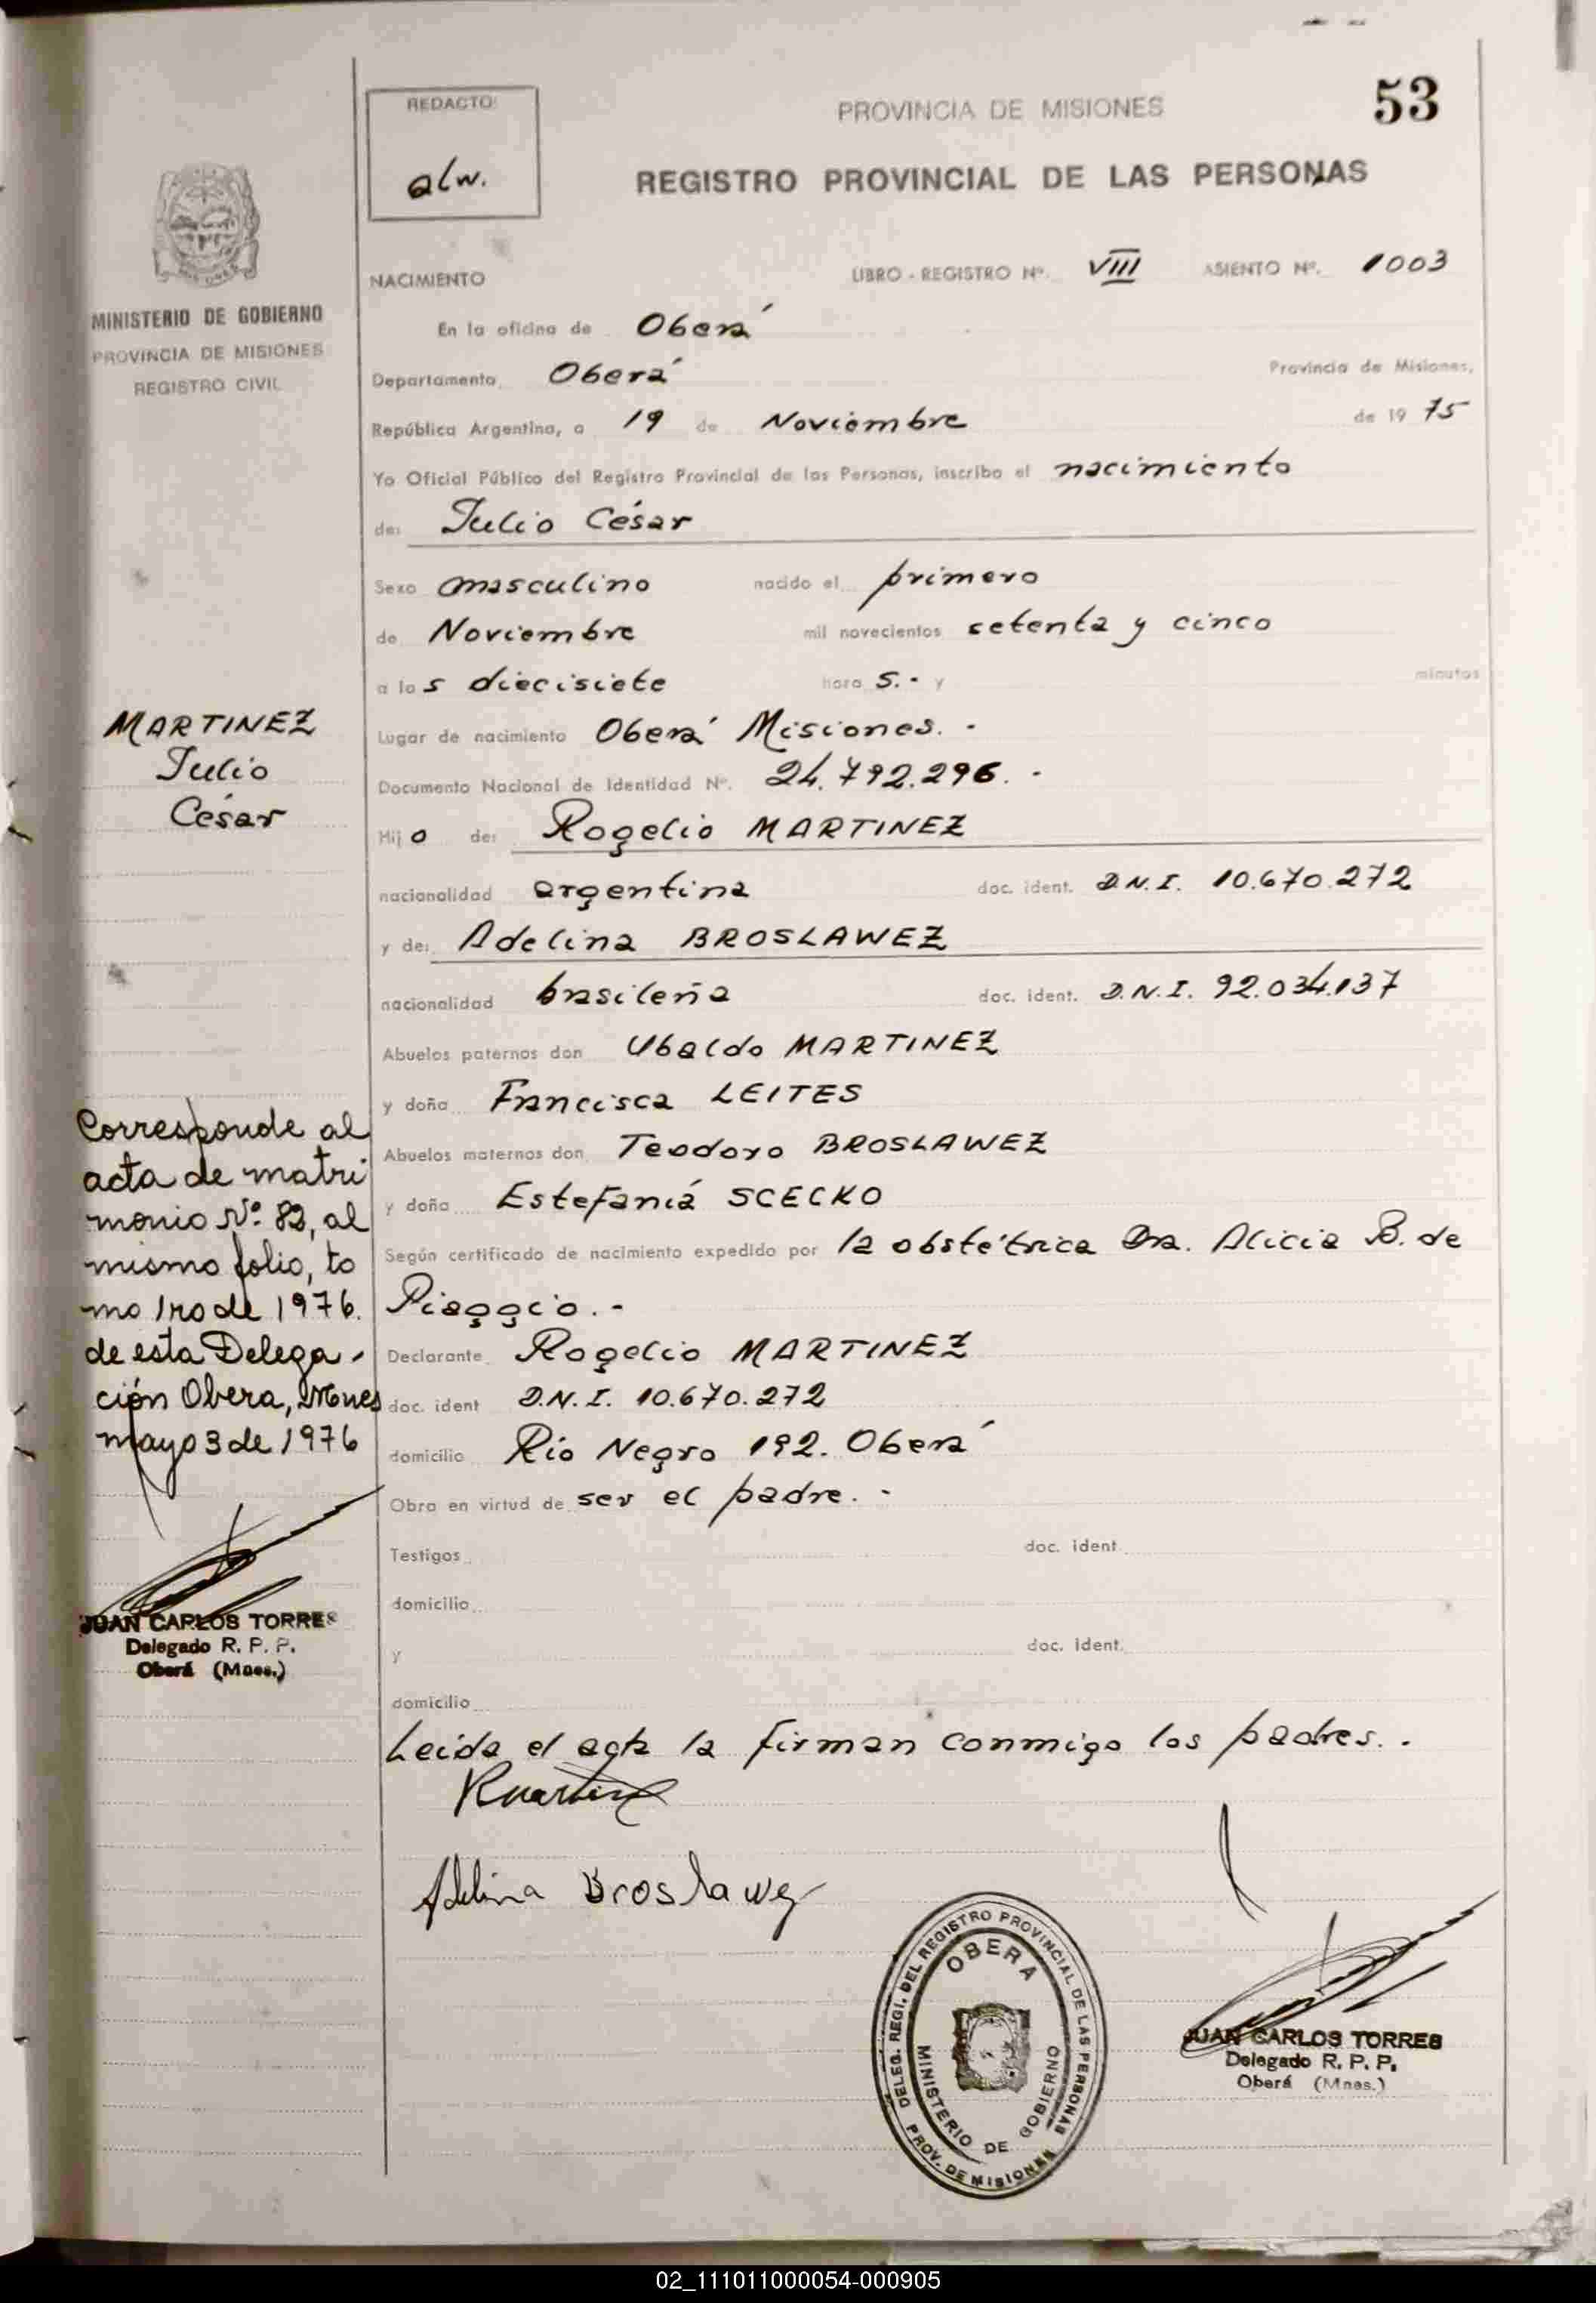 53
REDACTO:
alw.
PROVINCIA DE MISIONES
REGISTRO PROVINCIAL DE LAS PERSONAS
MINISTERIO DE GOBIERNO
PROVINCIA DE MISIONES
REGISTRO CIVIL
NACIMIENTO LIBRO - REGISTRO Nº. VIII ASIENTO Nº. 1003
En la oficina de Oberá
Departamento Oberá Provincia de Misiones,
República Argentina, a 19 de Noviembre de 19 75
Yo Oficial Público del Registro Provincial de las Personas, inscribo el nacimiento
de: Julio César
Sexo masculino nacido el primero
de Noviembre mil novecientos setenta y cinco
a las diecisiete hora s.- y minutos
Lugar de nacimiento Oberá Misiones.-
Documento Nacional de Identidad Nº. 24.792.296.-
Hijo de: Rogelio MARTINEZ
nacionalidad argentina doc. ident. D.N.I. 10.670.272
y de: Adelina BROSLAWEZ
nacionalidad brasileña doc. ident. D.N.I. 92.034.137
Abuelos paternos don Ubaldo MARTINEZ
y doña Francisca LEITES
Abuelos maternos don Teodoro BROSLAWEZ
y doña Estefaniá SCECKO
Según certificado de nacimiento expedido por la obstétrica Dra. Alicia B. de
Piaggio.-
Declarante Rogelio MARTINEZ
doc. ident D.N.I. 10.670.272
domicilio Río Negro 192. Oberá
Obra en virtud de ser el padre.-
Testigos doc. ident.
domicilio
y doc. ident.
domicilio
Leida el acta la firman conmigo los padres.-
RMartinez
Adelina Broslawez
MARTINEZ
Julio
César
Corresponde al
acta de matri
monio Nº 82, al
mismo folio, to
mo 1ro de 1976.
de esta Delega-
ción Obera, Mnes
mayo 3 de 1976
JUAN CARLOS TORRES
Delegado R. P. P.
Oberá (Mnes.)
DELEG. REGI. DEL REGISTRO PROVINCIAL DE LAS PERSONAS
OBERA
MINISTERIO DE GOBIERNO
PROV. DE MISIONES
JUAN CARLOS TORRES
Delegado R. P. P.
Oberá (Mnes.)
02_111011000054-000905